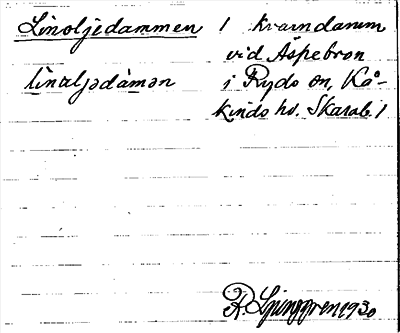 Linoljedammen / kvarndamm
vid Aspebron
i Ryds sn, Kå-
kinds hd. Skarab. /
R. Ljunggren 1930